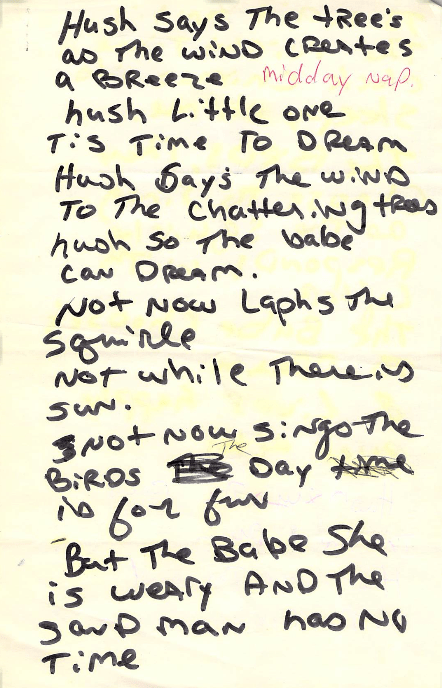 Hush says The tree's
as The wind creates
a Breeze midday nap.
hush Little one
Tis Time To Dream
Hush Says The wind
To The chattering trees
hush so The babe
can Dream.
Not Now Laphs The
Squirle
Not while There is
sun.
Not Now sings The
Birds The Day
is for fun
But The Babe She
is weary And The
sand man has No
Time